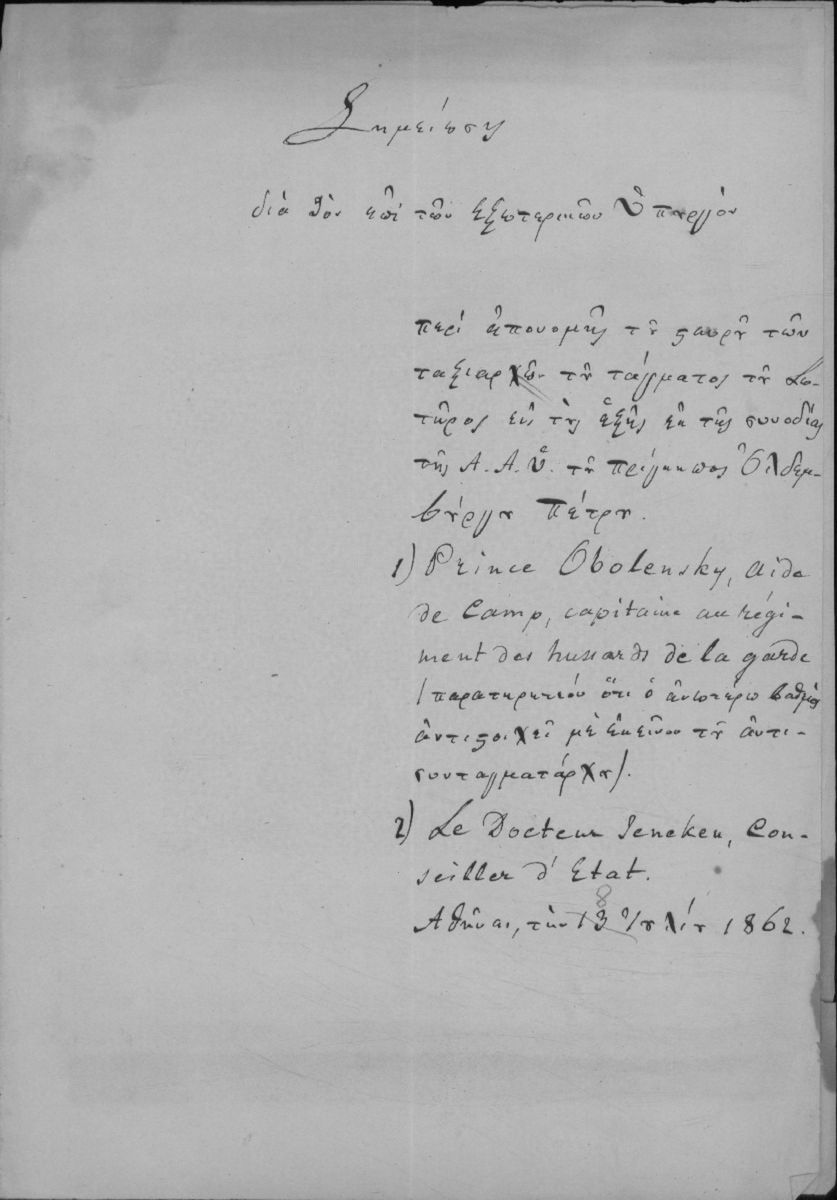 Σημείωσις
διὰ τὸν ἐπὶ τῶν ἐξωτερικῶν Ὑπουργὸν
περὶ ἀπονομῆς τοῦ σταυροῦ τῶν
ταξιαρχῶν τοῦ τάγματος τοῦ Σω-
τῆρος εἰς τοὺς ἑξῆς ἐκ τῆς συνοδίας
τῆς Α. Α. Ὑ. τοῦ πρίγκηπος Ὀλδεμ-
βούργου Πέτρου.
1) Prince Obolensky, aide
de Camp, capitaine au régi-
ment des hussards de la garde
(παρατηρητέον ὅτι ὁ ἀνωτέρω βαθμὸς
ἀντιστοιχεῖ μὲ ἐκεῖνον τοῦ ἀντι-
συνταγματάρχου).
2) Le Docteur Jencken, Con-
seiller d'Etat.
Ἀθῆναι, τὴν 18 Ἰουλίου 1862.